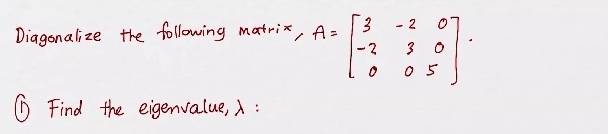 Diagonalize the following matrix, A = [3 -2 0
-2 3 0
0 0 5].
① Find the eigenvalue, λ :